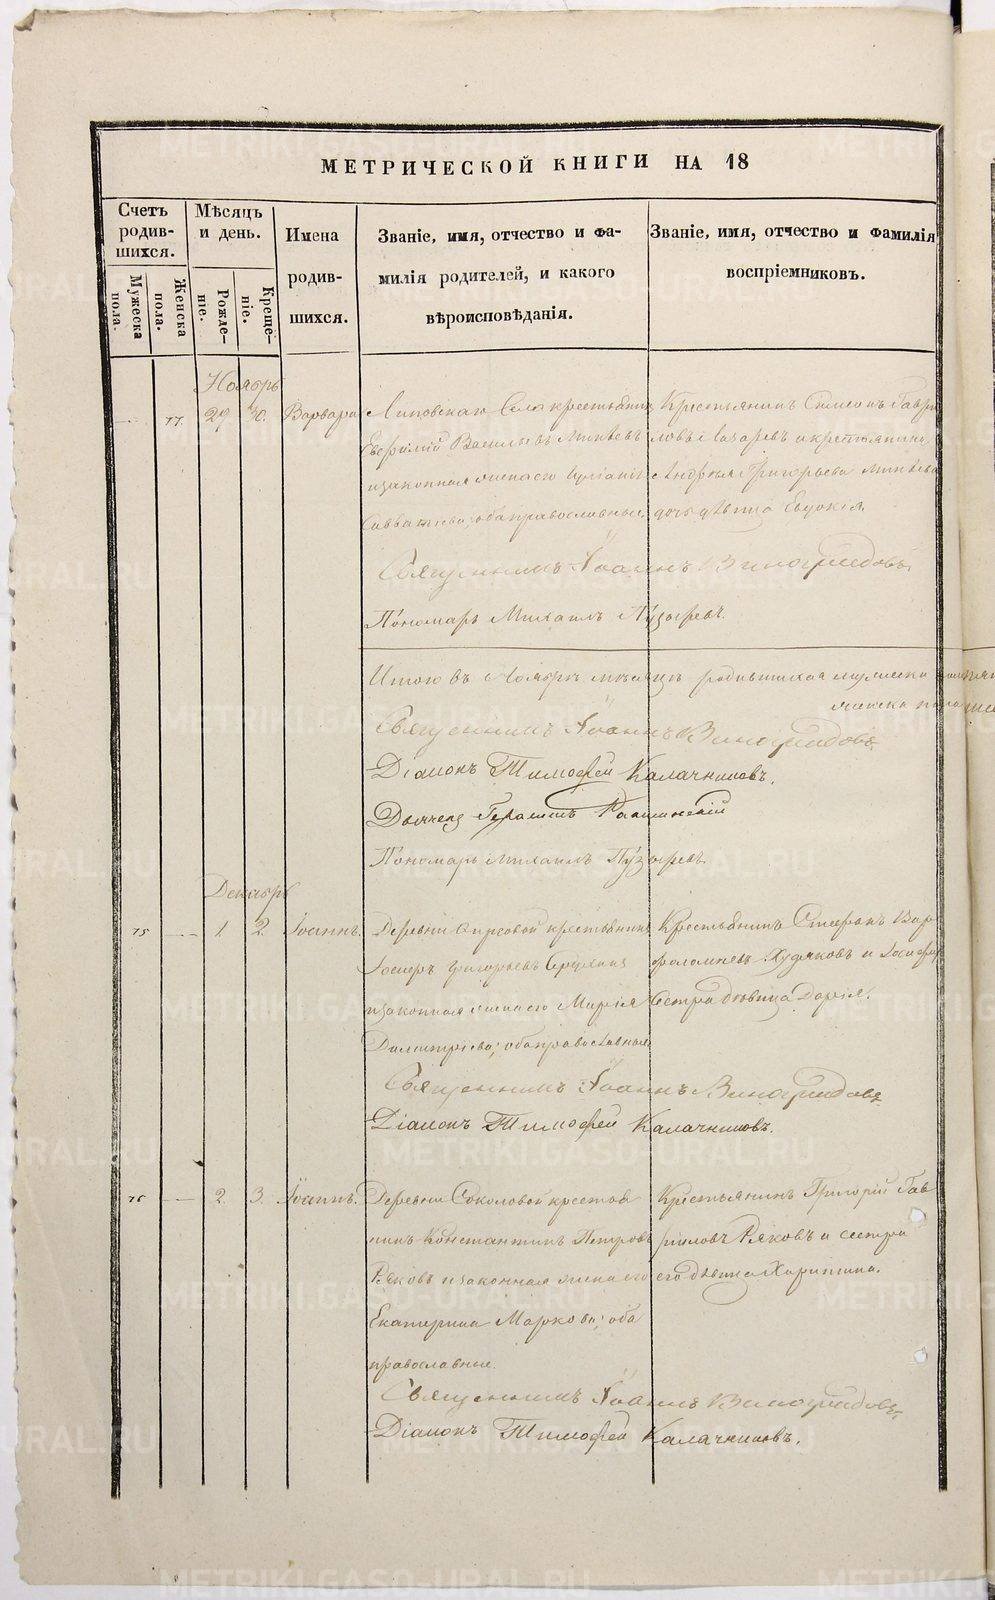 МЕТРИЧЕСКОЙ КНИГИ НА 18
Счетъ родив- шихся.
Мужеска пола.
Женска пола.
Мѣсяцъ и день.
Рожде- ніе.
Креще- ніе.
Имена родив- шихся.
Званіе, имя, отчество и фа-
милія родителей, и какого
вѣроисповѣданія.
Званіе, имя, отчество и фамилія
воспріемниковъ.
Ноябрь
77. 29 30. Варвара
Липовскаго Села крестьянинъ
Евфимій Васильевъ Минѣевъ
и законная жена его
Савватиева; оба православные.
Крестьянинъ Симеонъ Гаври
ловъ Лазаревъ и крестьянина
Андрея Григорьева Минѣева
дочь дѣвица Евдокія.
Священникъ Іоаннъ Виноградовъ.
Пономарь Михаилъ Пузыревъ.
Итого въ Ноябрѣ мѣсяцѣ родившихся мужеска
женска пола
Священникъ Іоаннъ Виноградовъ
Діаконъ Тимофей Калачниковъ.
Дьячекъ Герасимъ
Пономарь Михаилъ Пузыревъ
Декабрь
75 1. 2. Іоаннъ.
Деревни крестьянинъ
Григорьевъ
и законная жена его Марія
Димитріева; оба православные
Крестьянинъ Стефанъ Вар
фоломеевъ Худяковъ и
сестра дѣвица Дарія.
Священникъ Іоаннъ Виноградовъ
Діаконъ Тимофей Калачниковъ.
76 2 3. Іоаннъ.
Деревни Соколовой крестья
нинъ Константинъ Петровъ
Ряковъ и законная жена его
Екатерина Маркова; оба
православные.
Крестьянинъ Григорій Гав
риловъ Ряковъ и сестра
его дѣвица Харитина.
Священникъ Іоаннъ Виноградовъ
Діаконъ Тимофей Калачниковъ.
METRIKI.GASO-URAL.RU